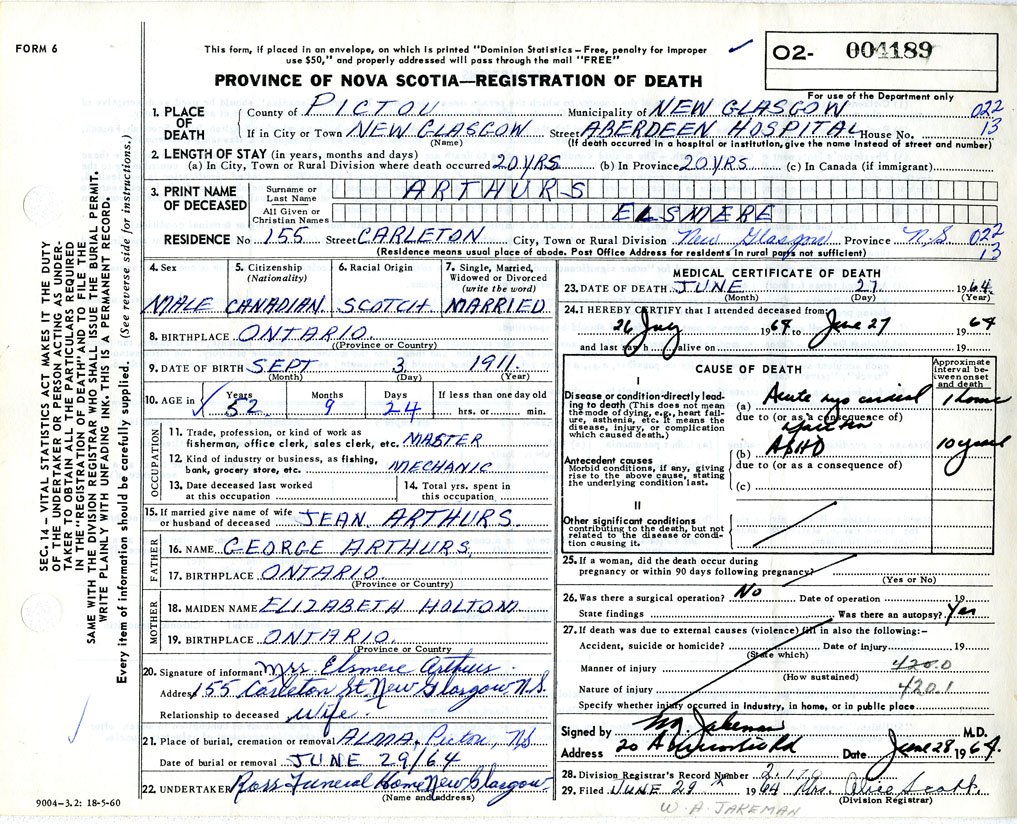 FORM 6
This form, if placed in an envelope, on which is printed "Dominion Statistics – Free, penalty for improper
use $50," and properly addressed will pass through the mail "FREE"
O2- 004189
PROVINCE OF NOVA SCOTIA—REGISTRATION OF DEATH
For use of the Department only
1. PLACE OF DEATH
County of PICTOU Municipality of NEW GLASGOW 022
If in City or Town NEW GLASGOW Street ABERDEEN HOSPITAL House No. 13
(Name) (If death occurred in a hospital or institution, give the name instead of street and number)
2. LENGTH OF STAY (in years, months and days)
(a) In City, Town or Rural Division where death occurred 20 YRS (b) In Province 20 YRS (c) In Canada (if immigrant)
3. PRINT NAME OF DECEASED
Surname or Last Name ARTHURS
All Given or Christian Names ELSMERE
RESIDENCE No 155 Street CARLETON City, Town or Rural Division New Glasgow Province N.S. 022
(Residence means usual place of abode. Post Office Address for residents in rural parts not sufficient) 13
4. Sex 5. Citizenship (Nationality) 6. Racial Origin 7. Single, Married, Widowed or Divorced (write the word)
MALE CANADIAN SCOTCH MARRIED
8. BIRTHPLACE ONTARIO
(Province or Country)
9. DATE OF BIRTH SEPT 3 1911
(Month) (Day) (Year)
10. AGE in Years Months Days If less than one day old
52 9 24 hrs. or min.
OCCUPATION
11. Trade, profession, or kind of work as
fisherman, office clerk, sales clerk, etc. MASTER
12. Kind of industry or business, as fishing,
bank, grocery store, etc. MECHANIC
13. Date deceased last worked at this occupation
14. Total yrs. spent in this occupation
15. If married give name of wife or husband of deceased JEAN ARTHURS
FATHER
16. NAME GEORGE ARTHURS
17. BIRTHPLACE ONTARIO
(Province or Country)
MOTHER
18. MAIDEN NAME ELIZABETH HOLTOM
19. BIRTHPLACE ONTARIO.
(Province or Country)
20. Signature of informant Mrs. Elsmere Arthurs
Address 155 Carleton St. New Glasgow N.S.
Relationship to deceased Wife
21. Place of burial, cremation or removal ALMA, Pictou, NS
Date of burial or removal JUNE 29/64
22. UNDERTAKER Ross Funeral Home New Glasgow
(Name and address)
MEDICAL CERTIFICATE OF DEATH
23. DATE OF DEATH JUNE 27 1964
(Month) (Day) (Year)
24. I HEREBY CERTIFY that I attended deceased from:
26 1964 to June 27 1964
and last saw h alive on 19
CAUSE OF DEATH
Approximate interval between onset and death
I
Disease or condition directly leading to death (This does not mean the mode of dying, e.g., heart failure, asthenia, etc. It means the disease, injury, or complication which caused death.)
(a) Acute myocardial 1 hour
due to (or as a consequence of)
infarction
(b) ASHD 10 years
Antecedent causes
Morbid conditions, if any, giving rise to the above cause, stating the underlying condition last.
due to (or as a consequence of)
(c)
II
Other significant conditions
contributing to the death, but not related to the disease or condition causing it.
25. If a woman, did the death occur during
pregnancy or within 90 days following pregnancy?
(Yes or No)
26. Was there a surgical operation? No Date of operation 19
State findings Was there an autopsy? Yes
27. If death was due to external causes (violence) fill in also the following:–
Accident, suicide or homicide? Date of injury 19
(State which)
Manner of injury 420.0
(How sustained)
Nature of injury 420.1
Specify whether injury occurred in Industry, in home, or in public place
Signed by Jakeman M.D.
Address 20 Rd Date June 28 1964
28. Division Registrar's Record Number
29. Filed JUNE 29 1964 Mrs. Alice Scott
(Division Registrar)
W. A. JAKEMAN
SEC. 14 – VITAL STATISTICS ACT MAKES IT THE DUTY
OF THE UNDERTAKER OR PERSON ACTING AS UNDER-
TAKER TO OBTAIN ALL THE PARTICULARS REQUIRED
IN THE "REGISTRATION OF DEATH" AND TO FILE THE
SAME WITH THE DIVISION REGISTRAR WHO SHALL ISSUE THE BURIAL PERMIT.
WRITE PLAINLY WITH UNFADING INK. THIS IS A PERMANENT RECORD.
Every item of information should be carefully supplied. (See reverse side for instructions.)
9004-3.2: 18-5-60